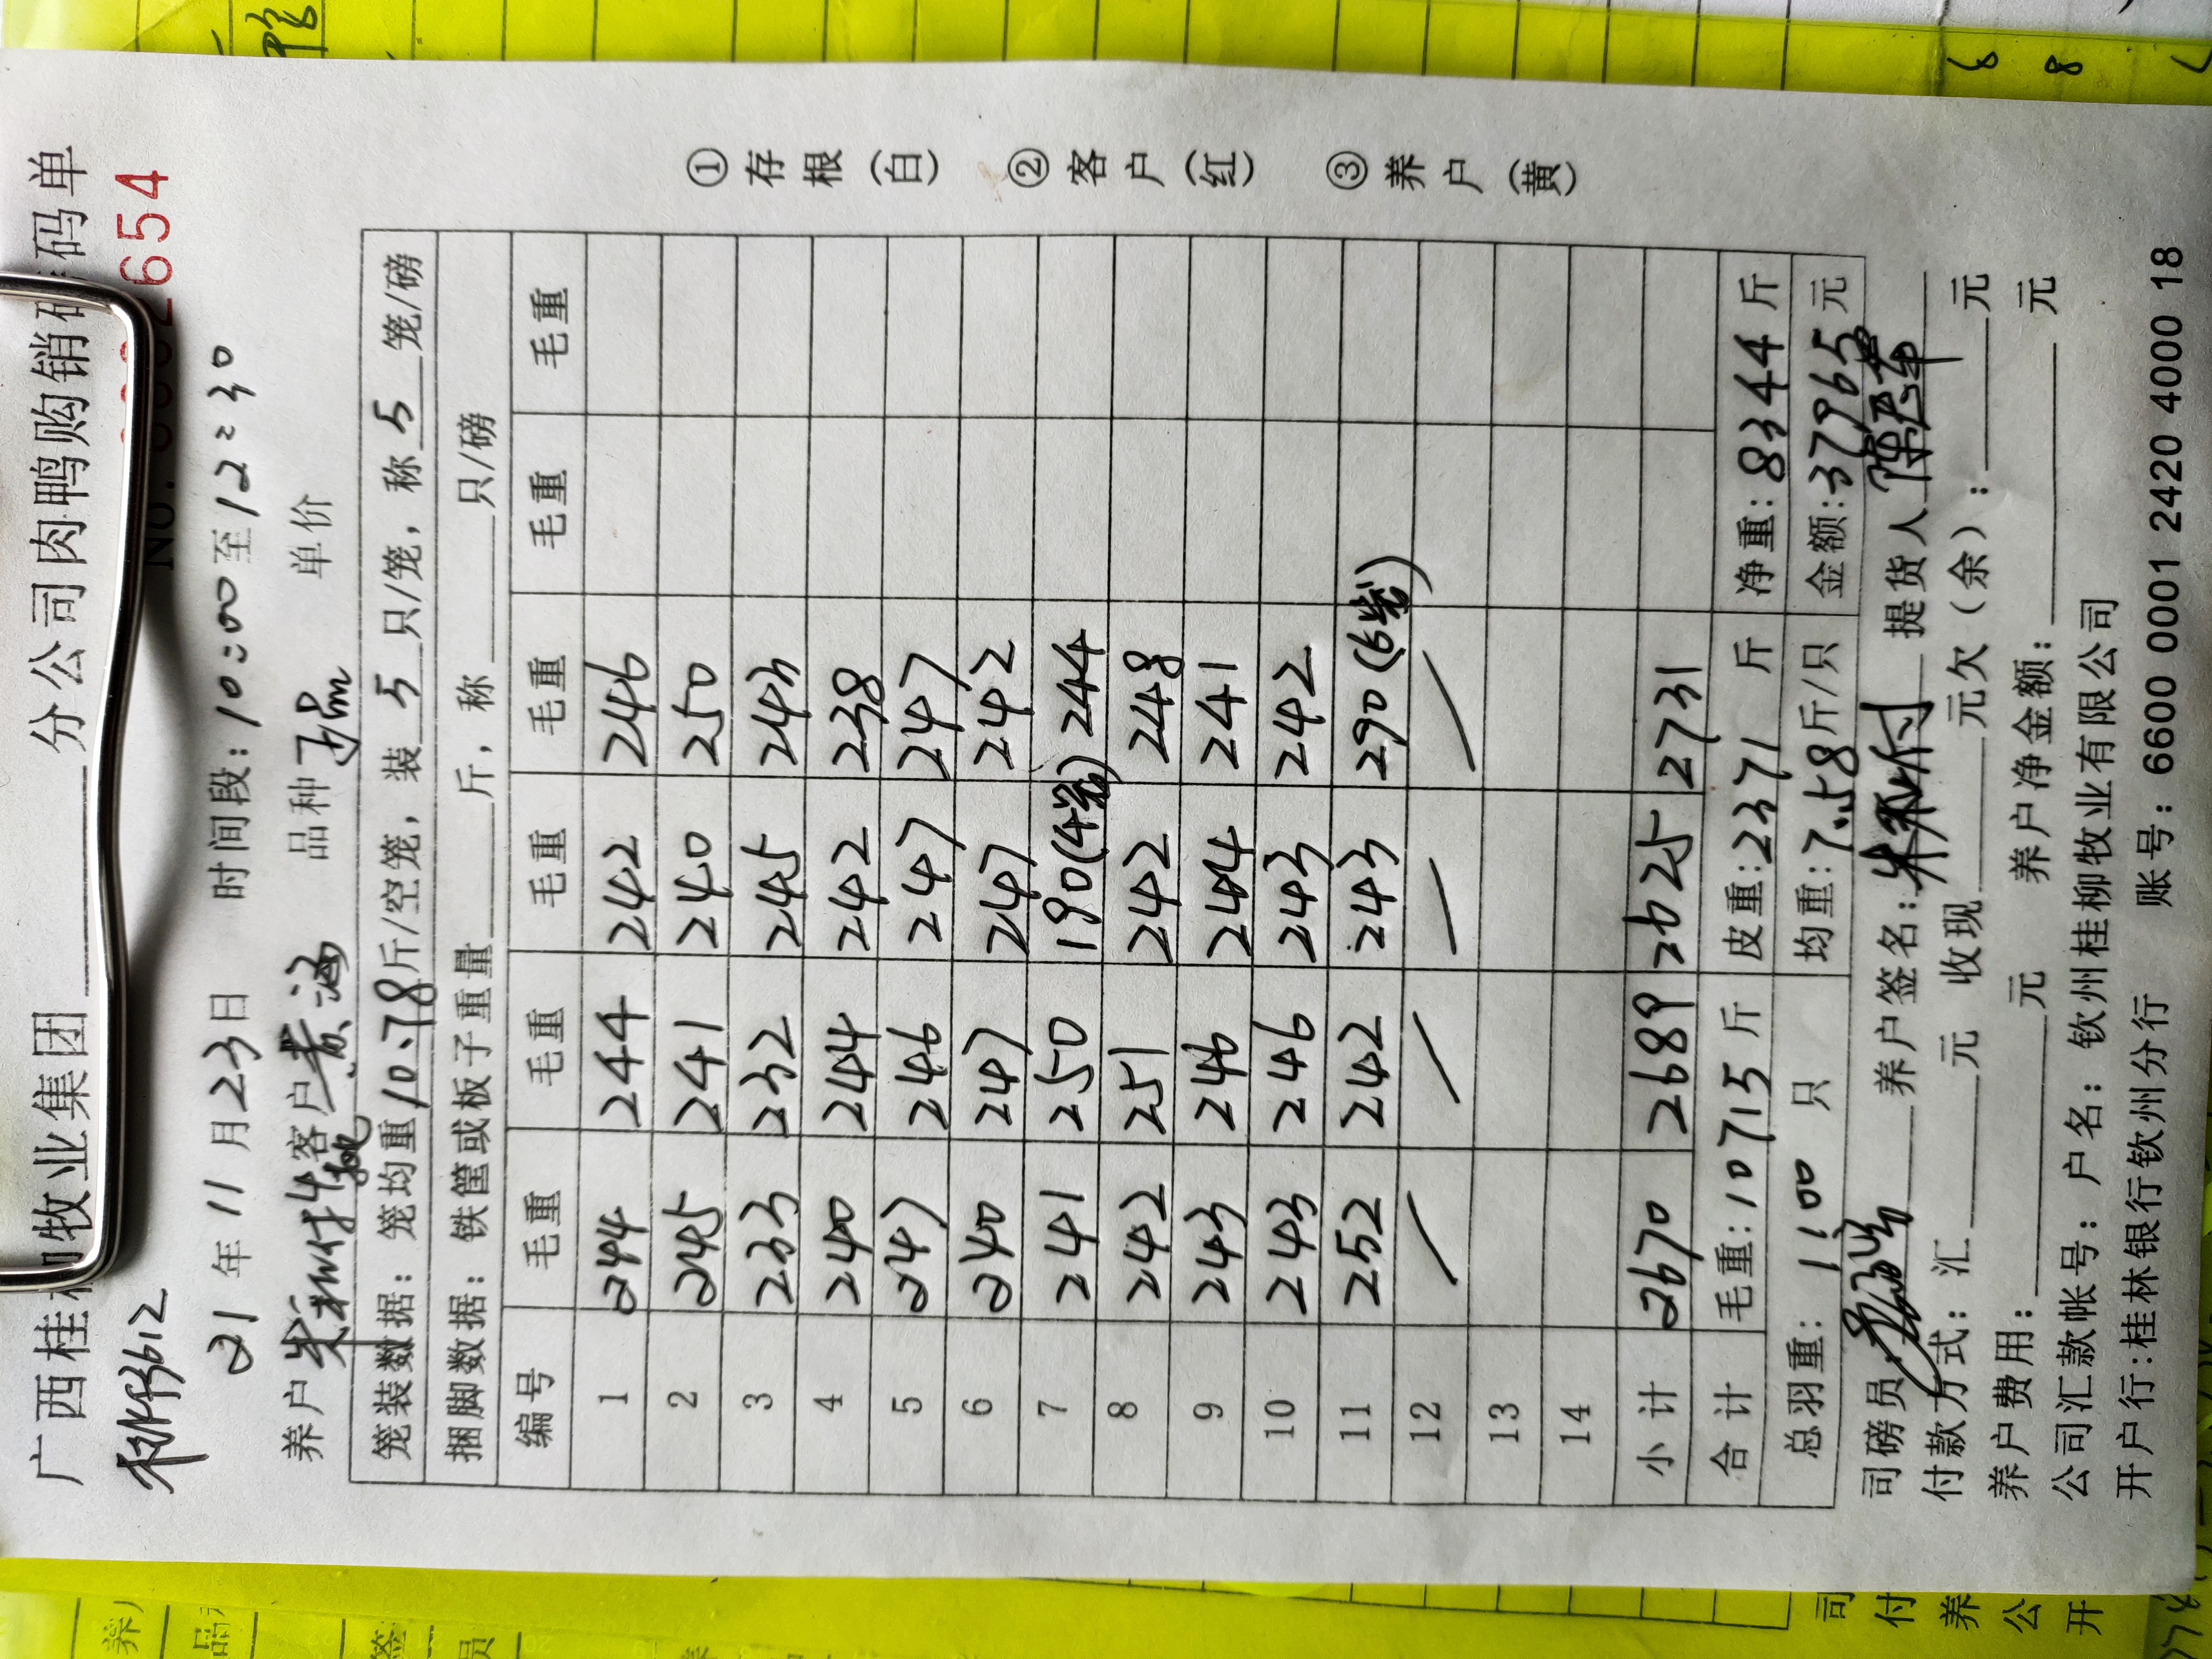 广西桂柳牧业集团 分公司肉鸭购销磅码单
2654
21年11月23日 时间段:10:00至12:30
养户 客户 品种 单价
笼装数据: 笼均重10.78斤/空笼, 装5只/笼, 称5笼/磅
捆脚数据: 铁筐或板子重量 斤, 称 只/磅
编号 毛重 毛重 毛重 毛重 毛重 毛重
1 244 244 242 246
2 245 241 240 250
3 233 232 245 243
4 240 244 242 238
5 247 246 247 247
6 240 247 247 242
7 241 250 190(4笼) 244
8 242 251 242 248
9 243 246 244 241
10 243 246 243 242
11 252 242 243 290(6笼)
12 / / / /
13
14
小计 2670 2689 2625 2731
合计 毛重:10715斤 皮重:2371斤 净重:8344斤
总羽重: 1100 只 均重:7.58斤/只 金额:37965元
司磅员 养户签名: 提货人
付款方式: 汇 元 收现 元欠(余): 元
养户费用: 元 养户净金额: 元
公司汇款帐号: 户名: 钦州桂柳牧业有限公司
开户行:桂林银行钦州分行 账号: 6600 0001 2420 4000 18
①存根(白) ②客户(红) ③养户(黄)